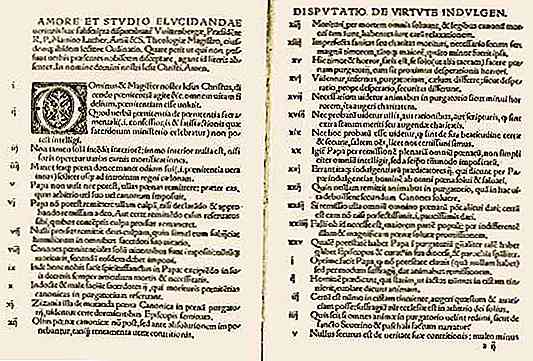 AMORE ET STVDIO ELVCIDANDAE
ueritatis hæc subscripta disputabunt Vuittenbergæ, Præsidente
R. P. Martino Luther, Artiũ & S. Theologiæ Magistro, eiusdemq
ibidem lectore Ordinario. Quare petit ut qui non possunt
uerbis præsentes nobiscum disceptare, agant id literis absentes.
In nomine domini nostri Iesu Christi. Amen.
i Ominus & Magister noster Iesus Christus, dicendo
pœnitentiam agite &c. omnem uitam fidelium,
pœnitentiam esse uoluit.
ij Quod uerbũ pœnitentia de pœnitentia sacramentali
(.i. confessiõis & satisfactiõis quæ
sacerdotum ministerio celebratur) non potest
iij Non tamen solã intẽdit interiorẽ; immo interior nulla est, nisi
foris operetur uarias carnis mortificationes.
iiij Manet itaq pœna donec manet odium sui
usq ad introitum regni cælorum.
v Papa non uult nec potest, ullas pœnas remittere; præter eas,
quas arbitrio uel suo uel canonum imposuit.
vi Papa nõ potest remittere ullam culpã, nisi declarãdo & approbando
remissam a deo. Aut certe remittẽdo casus reseruatos
sibi, quibus contẽptis culpa prorsus remaneret.
vij Nulli prorsus remittit deus culpam, quin simul eum subijciat
humiliatum in omnibus sacerdoti suo uicario.
viij Canones pœnitentiales solũ uiuentibus sunt impositi
morituris, secundũ eosdem debet imponi.
ix Inde bene nobis facit spiritussanctus in Papa: excipiẽdo in suis
decretis semper articulum mortis & necessitatis.
x Indocte & male faciũt sacerdotes ij, qui morituris pœnitẽtias
canonicas in purgatorium reseruant.
xi Zizania illa de mutanda pœna Canonica in pœnã purgatorij,
uidentur certe dormientibus Episcopis seminata.
xij Olim pœnæ canonicæ nõ post, sed ante absolutionem imponebantur,
tanq tentamenta ueræ contritionis.
DISPVTATIO DE VIRTVTE INDVLGEN.
xiij Morituri, per mortem omnia soluunt, & legibus canonũ mortui
iam sunt, habentes iure earum relaxationem.
xiiij Imperfecta sanitas seu charitas morituri, necessario secum fert
magnum timorem, tantoq maiorẽ, quãto minor fuerit ipsa.
xv Hic timor & horror, satis est, se solo
purgatorij, cum sit proximus desperationis horrori.
xvi Videntur, infernus, purgatorium, cælum differre; sicut desperatio,
prope desperatio, securitas differunt.
xvij Necessarium uidetur animabus in purgatorio sicut minui horrorem,
ita augeri charitatem.
xviij Nec probatũ uidetur ullis, aut rationibus, aut scripturis, q sint
extra statum meriti seu augendæ charitatis.
xix Nec hoc probatũ esse uidetur, q sint de sua beatitudine certæ
& securæ, saltem oẽs; licet nos certissimi simus.
xx Igit Papa per remissionẽ plenariã omniũ pœnarũ, non simpliciter
omniũ intelligit, sed a seipso tãtummodo impositarũ.
xxi Errant itaq indulgentiarũ prædicatores ij, qui dicunt per Papæ
indulgentias, hominẽ ab omni pœna solui & saluari.
xxij Quin nullam remittit animabus in purgatorio, quã in hac uita
debuissent secundum Canones soluere.
xxiij Si remissio ulla omniũ omnino pœnarũ põt alicui dari; certũ
est eam nõ nisi perfectissimis .i. paucissimis dari.
xxiiij Falli ob id necesse est, maiorem partẽ populi: per indifferentẽ
illam & magnificam pœnæ solutæ promissionem.
xxv Qualẽ potestatẽ habet Papa in purgatoriũ generaliter, talẽ habet
quilibet Episcopus & curatus in sua diœcesi, & parochia specialiter.
i Optime facit Papa, q nõ potestate clauis (quã nullam habet)
sed per modum suffragij, dat animabus remissionem.
ij Hominẽ prædicant, qui statim, ut iactus nummus in cistam
tinnierit, euolare dicunt animam.
iij Certũ est nũmo in cistam tinniente, augeri quæstum & auariciam
posse; suffragiũ aũt ecclesiæ est in arbitrio dei solius.
iiij Quis scit si omnes animæ in purgatorio uelint redimi, sicut de
sancto Seuerino & paschali factum narratur?
v Nullus securus est de ueritate suæ contritionis; multo minus
a ij